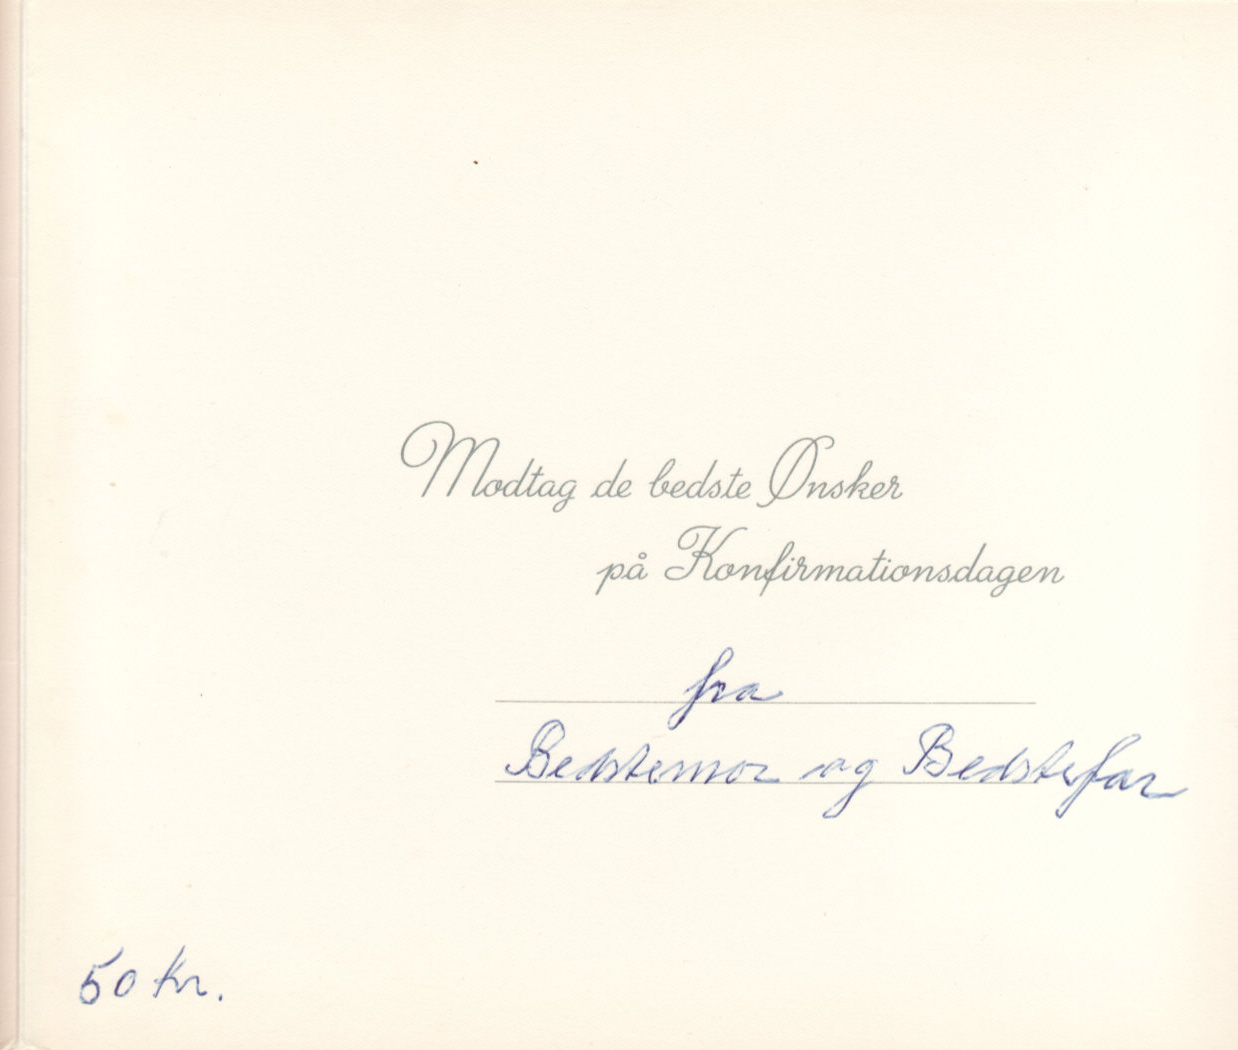 Modtag de bedste Ønsker
på Konfirmationsdagen
fra
Bedstemor og Bedstefar
50 kr.